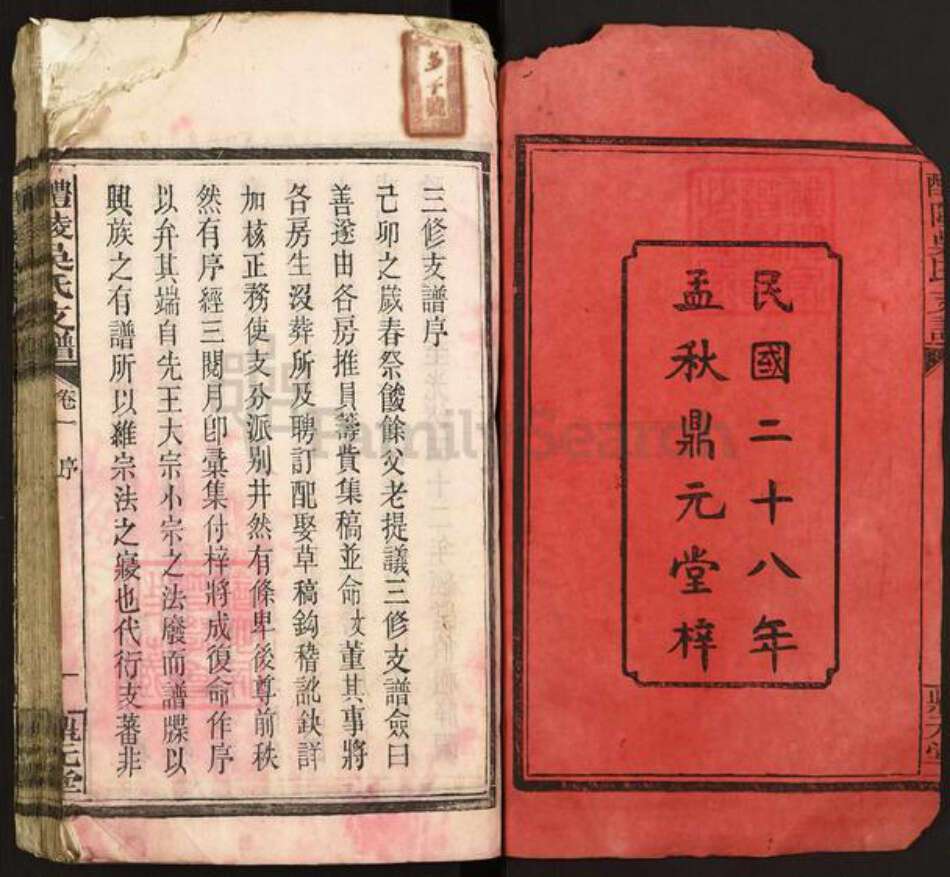 民國二十八年
孟秋鼎元堂梓
三修支譜序
己卯之歲春祭餕餘父老提議三修支譜僉曰
善遂由各房推員籌費集稿並命 董其事將
各房生沒葬所及聘訂配娶草稿鈎稽訛鈌詳
加核正務使支分派别井然有條卑後尊前秩
然有序經三閱月卽彙集付梓將成復命作序
以弁其端自先王大宗小宗之法廢而譜牒以
興族之有譜所以維宗法之寢也代衍支蕃非
醴陵吳氏支譜
卷一
序
一
鼎元堂
FamilySearch